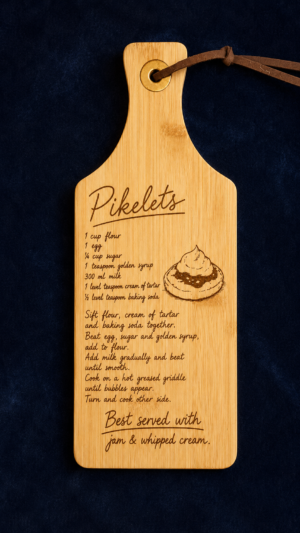 Pikelets
1 cup flour
1 egg
¼ cup sugar
1 teaspoon golden syrup
300 ml milk
1 level teaspoon cream of tartar
½ level teaspoon baking soda
Sift flour, cream of tartar
and baking soda together.
Beat egg, sugar and golden syrup,
add to flour.
Add milk gradually and beat
until smooth.
Cook on a hot greased griddle
until bubbles appear.
Turn and cook other side.
Best served with
jam & whipped cream.